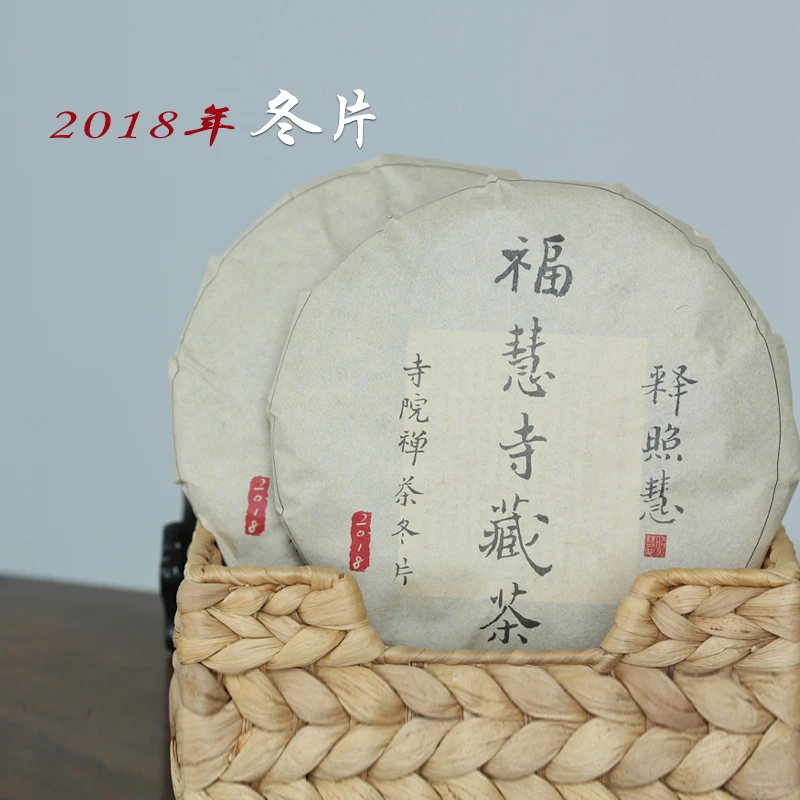 2018年 冬片
福慧寺藏茶
释照慧
寺院禅茶冬片
2018
2018